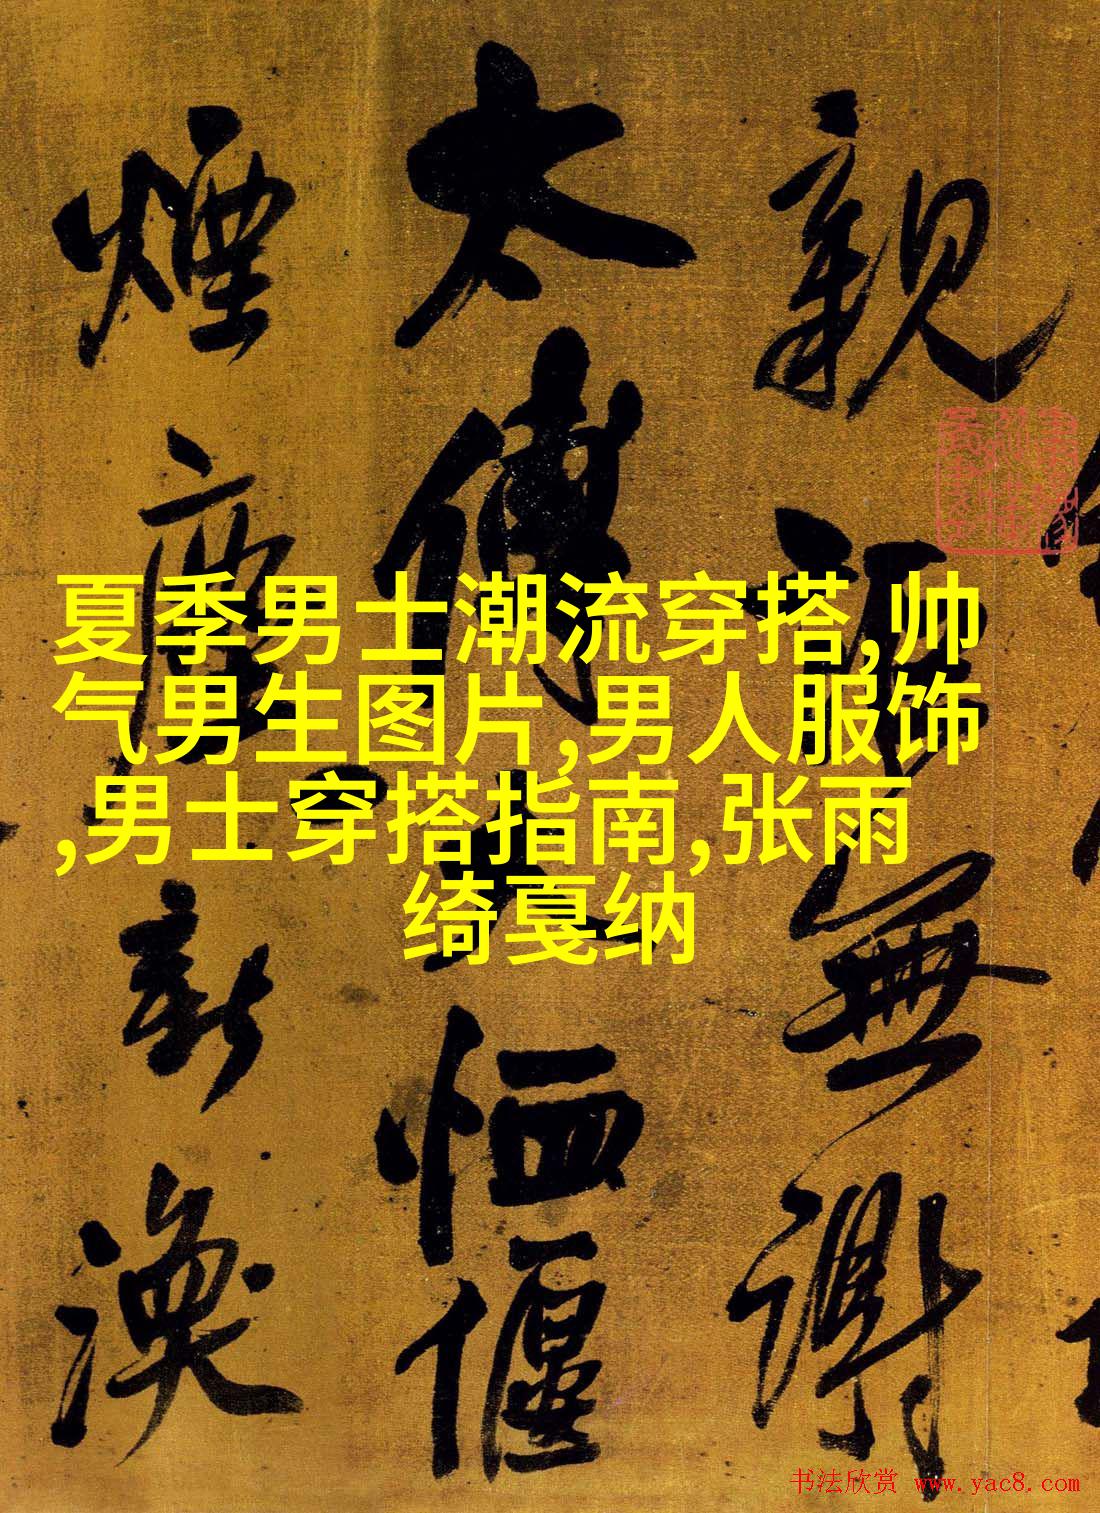 夏季男士潮流穿搭,帅
气男生图片,男人服饰
,男士穿搭指南,张雨
绮戛纳
親
無
謝
太
傅
恤
偃
煙
塵
新
渙
书法欣赏 www.yac8.com